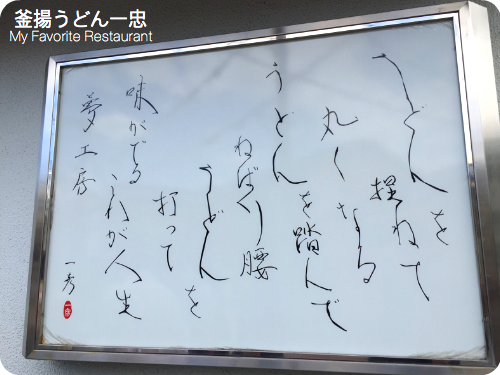 釜揚うどん一忠
My Favorite Restaurant
うどんを
捏ねて
丸くなる
うどん
を踏んで
ねばりし腰
うどんを
打って
味がでる
これが人生
夢工房
一秀